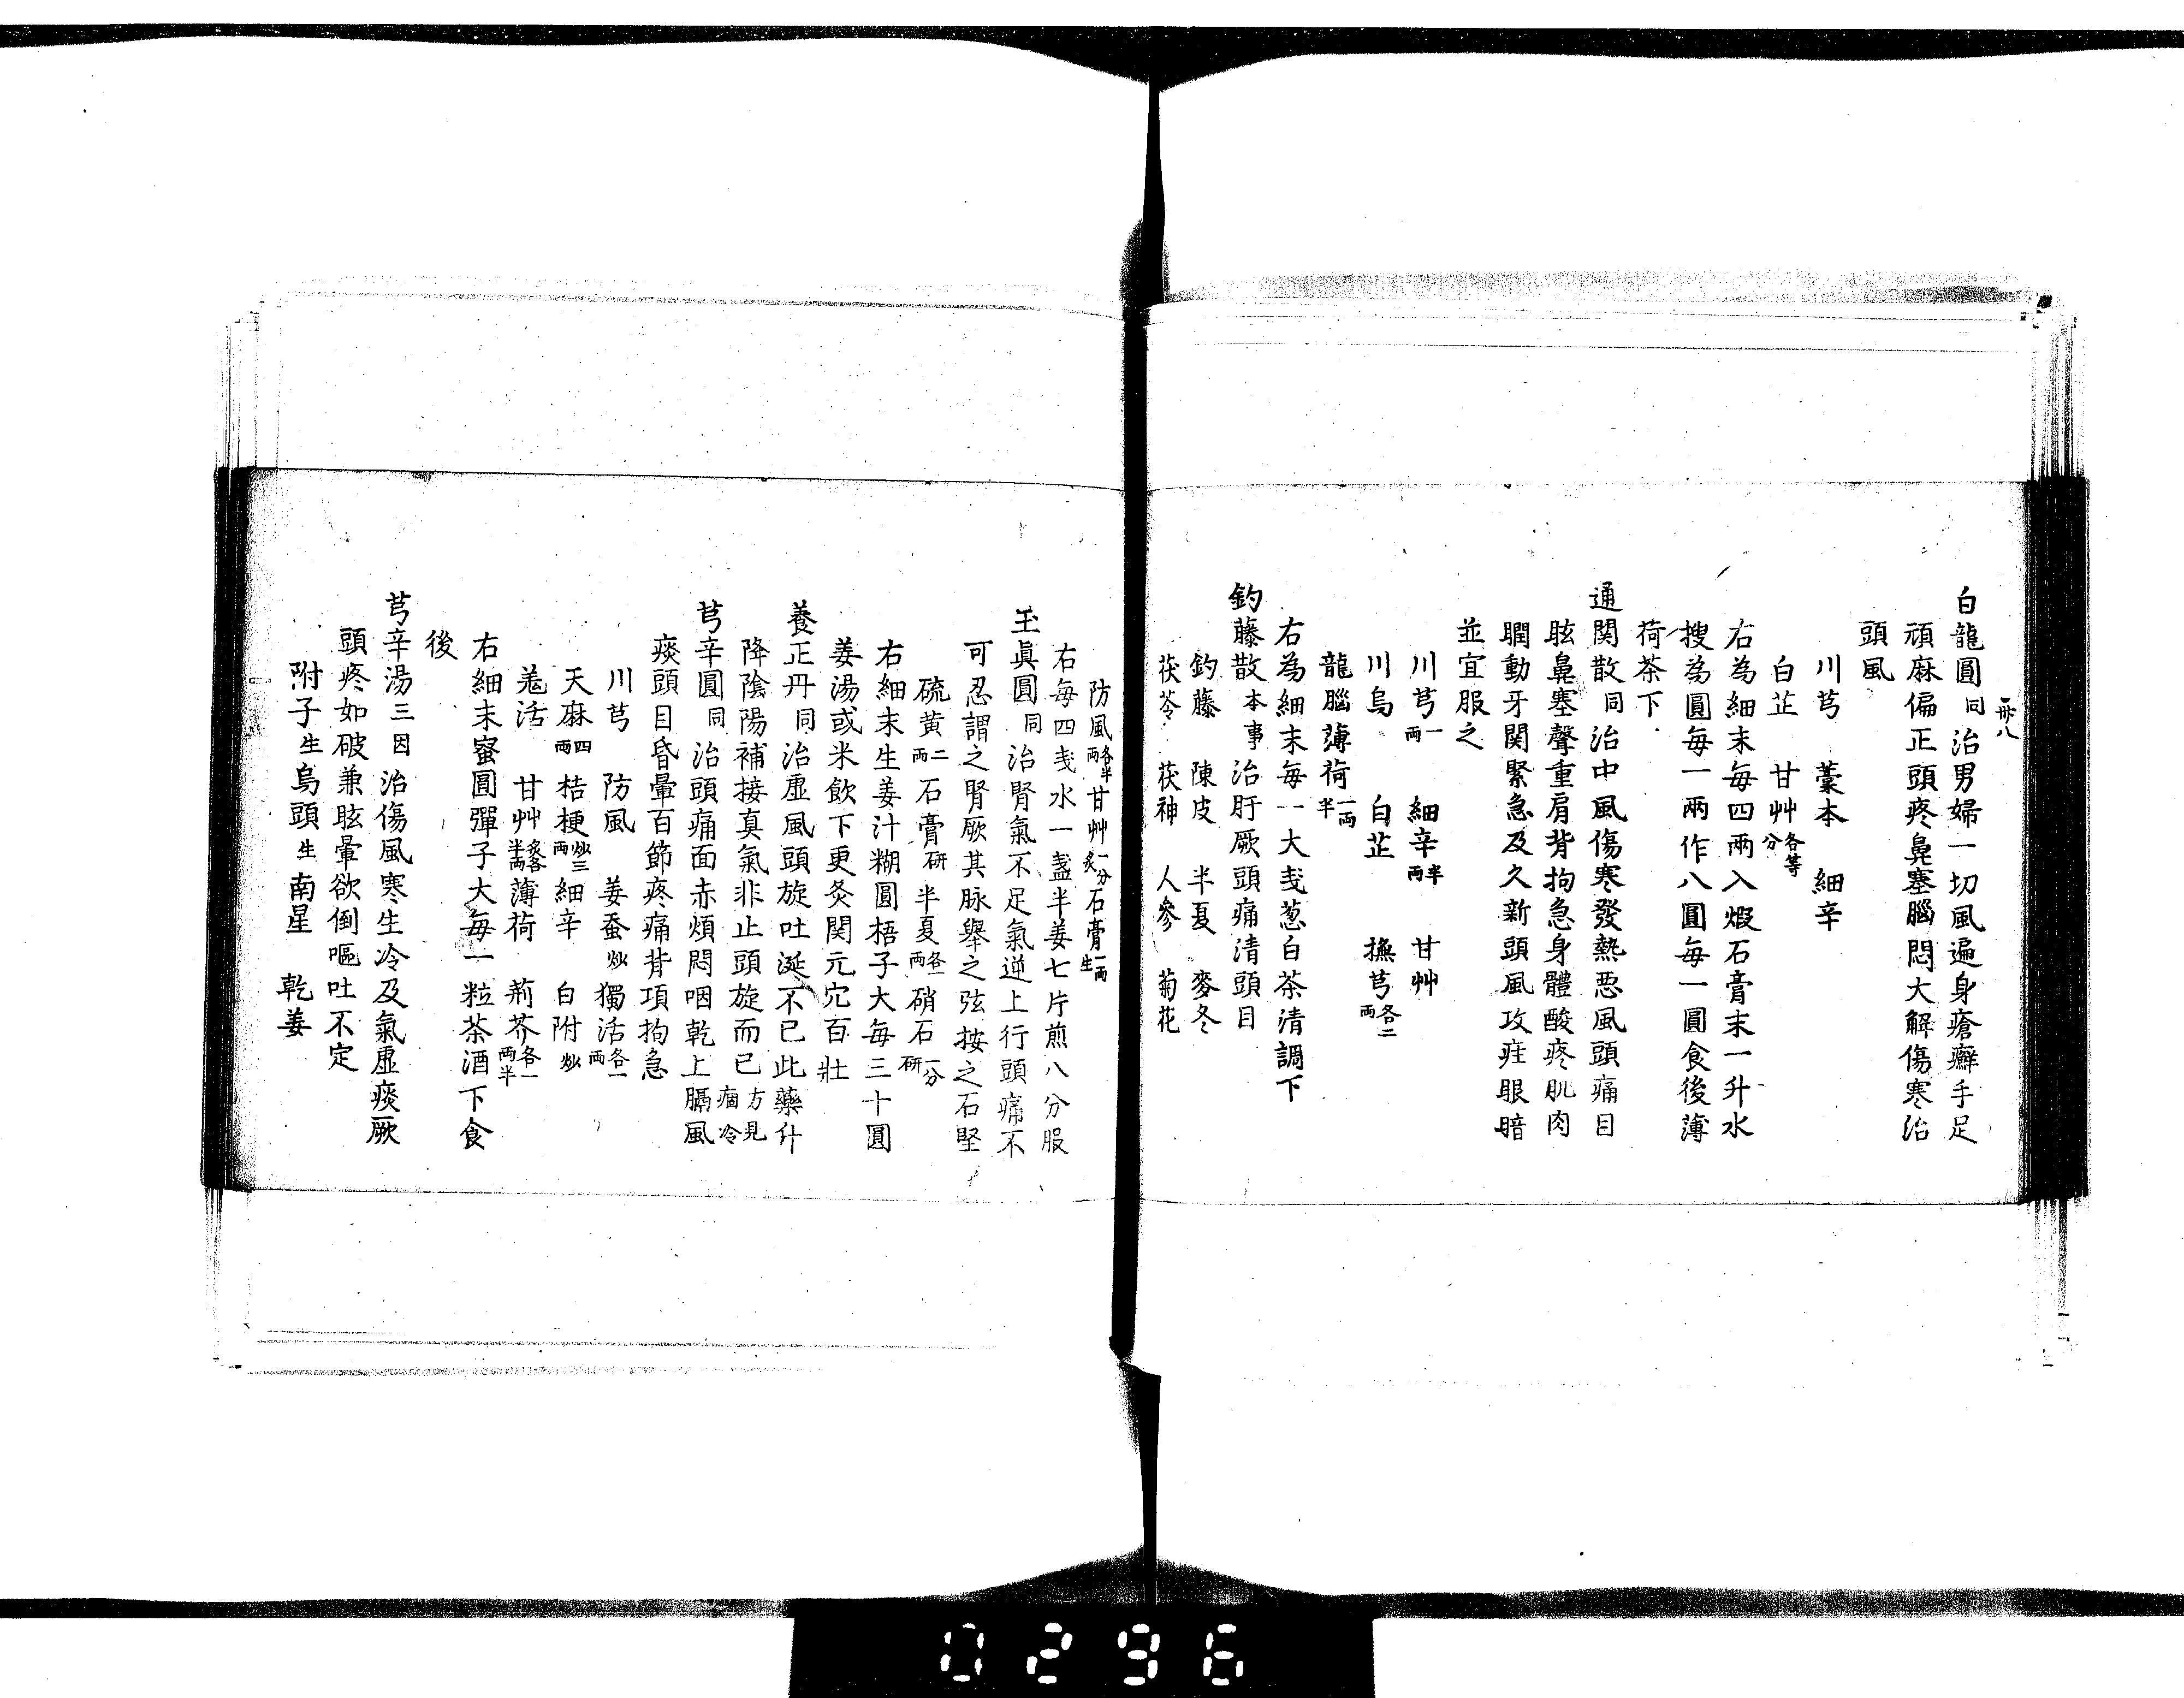 卅八
白龍圓同治男婦一切風遍身瘡癬手足
頑麻偏正頭疼鼻塞腦悶大解傷寒治
頭風
川芎 藁本 細辛
白芷 甘艸各等分
右為細末每四兩入煆石膏末一升水
搜為圓每一兩作八圓每一圓食後薄
荷茶下
通関散同治中風傷寒發熱惡風頭痛目
眩鼻塞聲重肩背拘急身體酸疼肌肉
瞤動牙関緊急及久新頭風攻疰眼暗
並宜服之
川芎一兩 細辛半兩 甘艸
川烏 白芷 撫芎各二兩
龍腦薄荷一兩半
右為細末每一大戔葱白茶清調下
釣藤散本事治肝厥頭痛清頭目
釣藤 陳皮 半夏 麥冬
茯苓 茯神 人參 菊花
防風各半兩甘艸一分炙石膏一兩生
右每四戔水一盞半姜七片煎八分服
玉眞圓同治腎氣不足氣逆上行頭痛不
可忍謂之腎厥其脉舉之弦按之石堅
硫黄二兩石膏研半夏各一兩硝石一分研
右細末生姜汁糊圓梧子大每三十圓
姜湯或米飲下更灸関元穴百壯
養正丹同治虛風頭旋吐涎不已此藥升
降陰陽補接真氣非止頭旋而已方見痼冷
芎辛圓同治頭痛面赤煩悶咽乾上膈風
痰頭目昏暈百節疼痛背項拘急
川芎 防風 姜蚕炒獨活各一兩
天麻四兩桔梗炒三兩細辛 白附炒
羗活 甘艸炙各半兩薄荷 荊芥各一兩半
右細末蜜圓彈子大每一粒茶酒下食
後
芎辛湯三因治傷風寒生冷及氣虛痰厥
頭疼如破兼眩暈欲倒嘔吐不定
附子生烏頭生南星 乾姜
0296